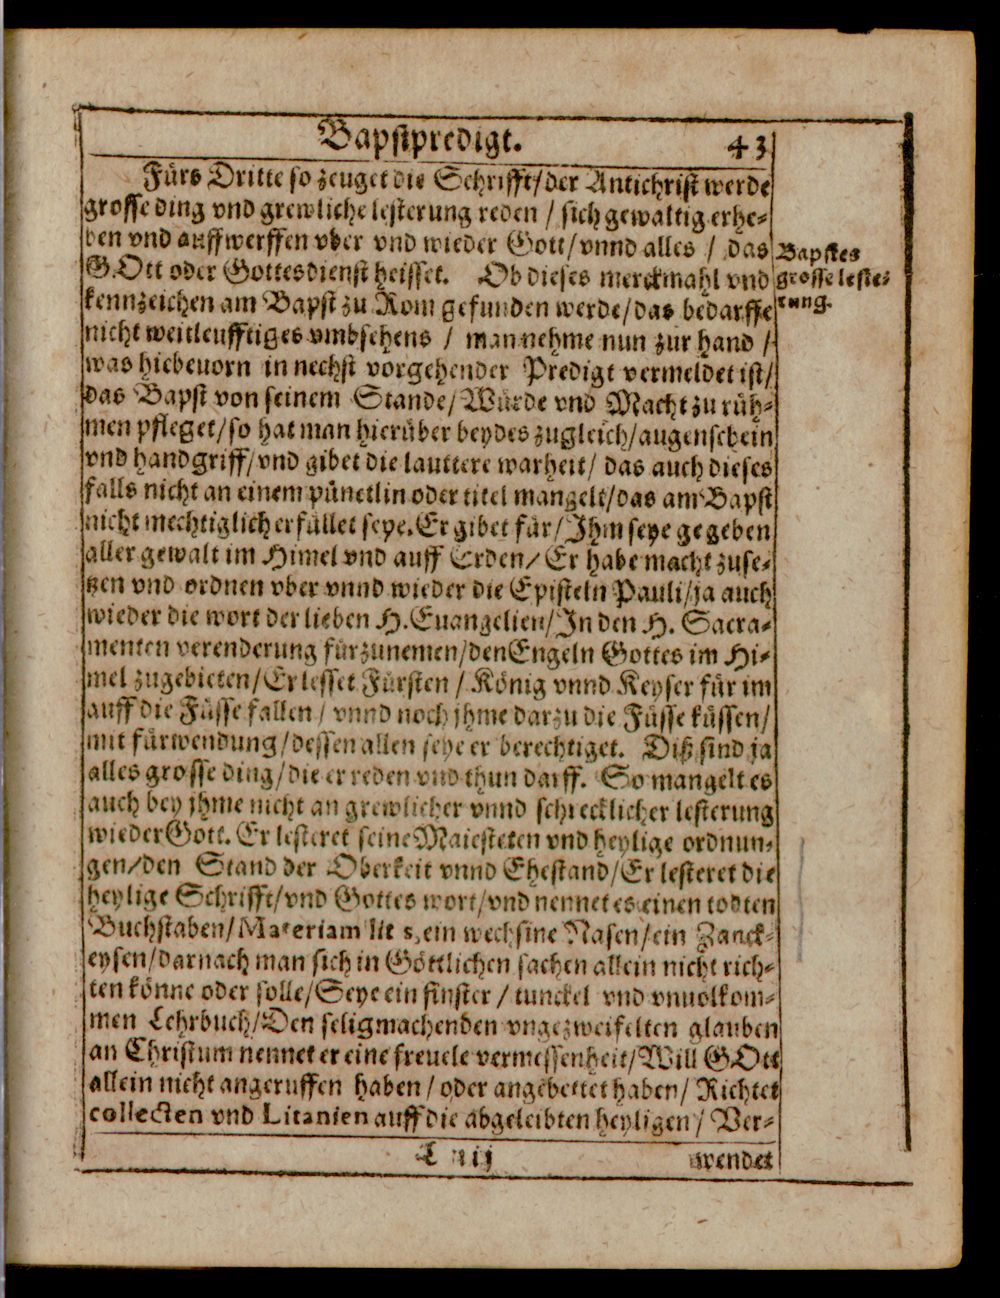 Bapstpredigt. 43
Fürs Dritte so zeuget die Schrifft/der Antichrist werde
grosse ding vnd grewliche lesterung reden / sich gewaltig erhe-
ben vnd auffwerffen vber vnd wieder Gott/vnnd alles / das
GOtt oder Gottesdienst heisset. Ob dieses merckmahl vnd
kennzeichen am Bapst zu Rom gefunden werde/das bedarffe
nicht weitleufftiges vmbsehens / man nehme nun zur hand /
was hiebeuorn in nechst vorgehender Predigt vermeldet ist/
das Bapst von seinem Stande/Würde vnd Macht zu rüh-
men pfleget/so hat man hierüber beydes zugleich/augenschein
vnd handgriff/vnd gibet die lauttere warheit/ das auch dieses
falls nicht an einem pünctlin oder titel mangelt/das am Bapst
nicht mechtiglich erfüllet seye. Er gibet für/Ihm seye gegeben
aller gewalt im Himel vnd auff Erden/Er habe macht zuse-
tzen vnd ordnen vber vnnd wieder die Episteln Pauli/ja auch
wieder die wort der lieben H. Euangelien/In den H. Sacra-
menten verenderung fürzunemen/den Engeln Gottes im Hi-
mel zugebieten/Er lesset Fürsten / König vnnd Keyser für im
auff die Füsse fallen / vnnd noch jhme darzu die Füsse küssen/
mit fürwendung/dessen allen seye er berechtiget. Diß sind ja
alles grosse ding/die er reden vnd thun darff. So mangelt es
auch bey jhme nicht an grewlicher vnnd schrecklicher lesterung
wieder Gott. Er lesteret seine Maiesteten vnd heylige ordnun-
gen/den Stand der Oberkeit vnnd Ehestand/Er lesteret die
heylige Schrifft/vnd Gottes wort/vnd nennet es einen todten
Buchstaben/Materiam ein wechsine Nasen/ein Zanck-
eysen/darnach man sich in Göttlichen sachen allein nicht rich-
ten könne oder solle/Seye ein finster / tunckel vnd vnuolkom-
men Lehrbuch/Den seligmachenden vngezweifelten glauben
an Christum nennet er eine freuele vermessenheit/Will GOtt
allein nicht angeruffen haben / oder angebettet haben/ Richtet
collecten vnd Litanien auff die abgeleibten heyligen / Ver-
wendet
Bapstes
grosse leste-
rung.